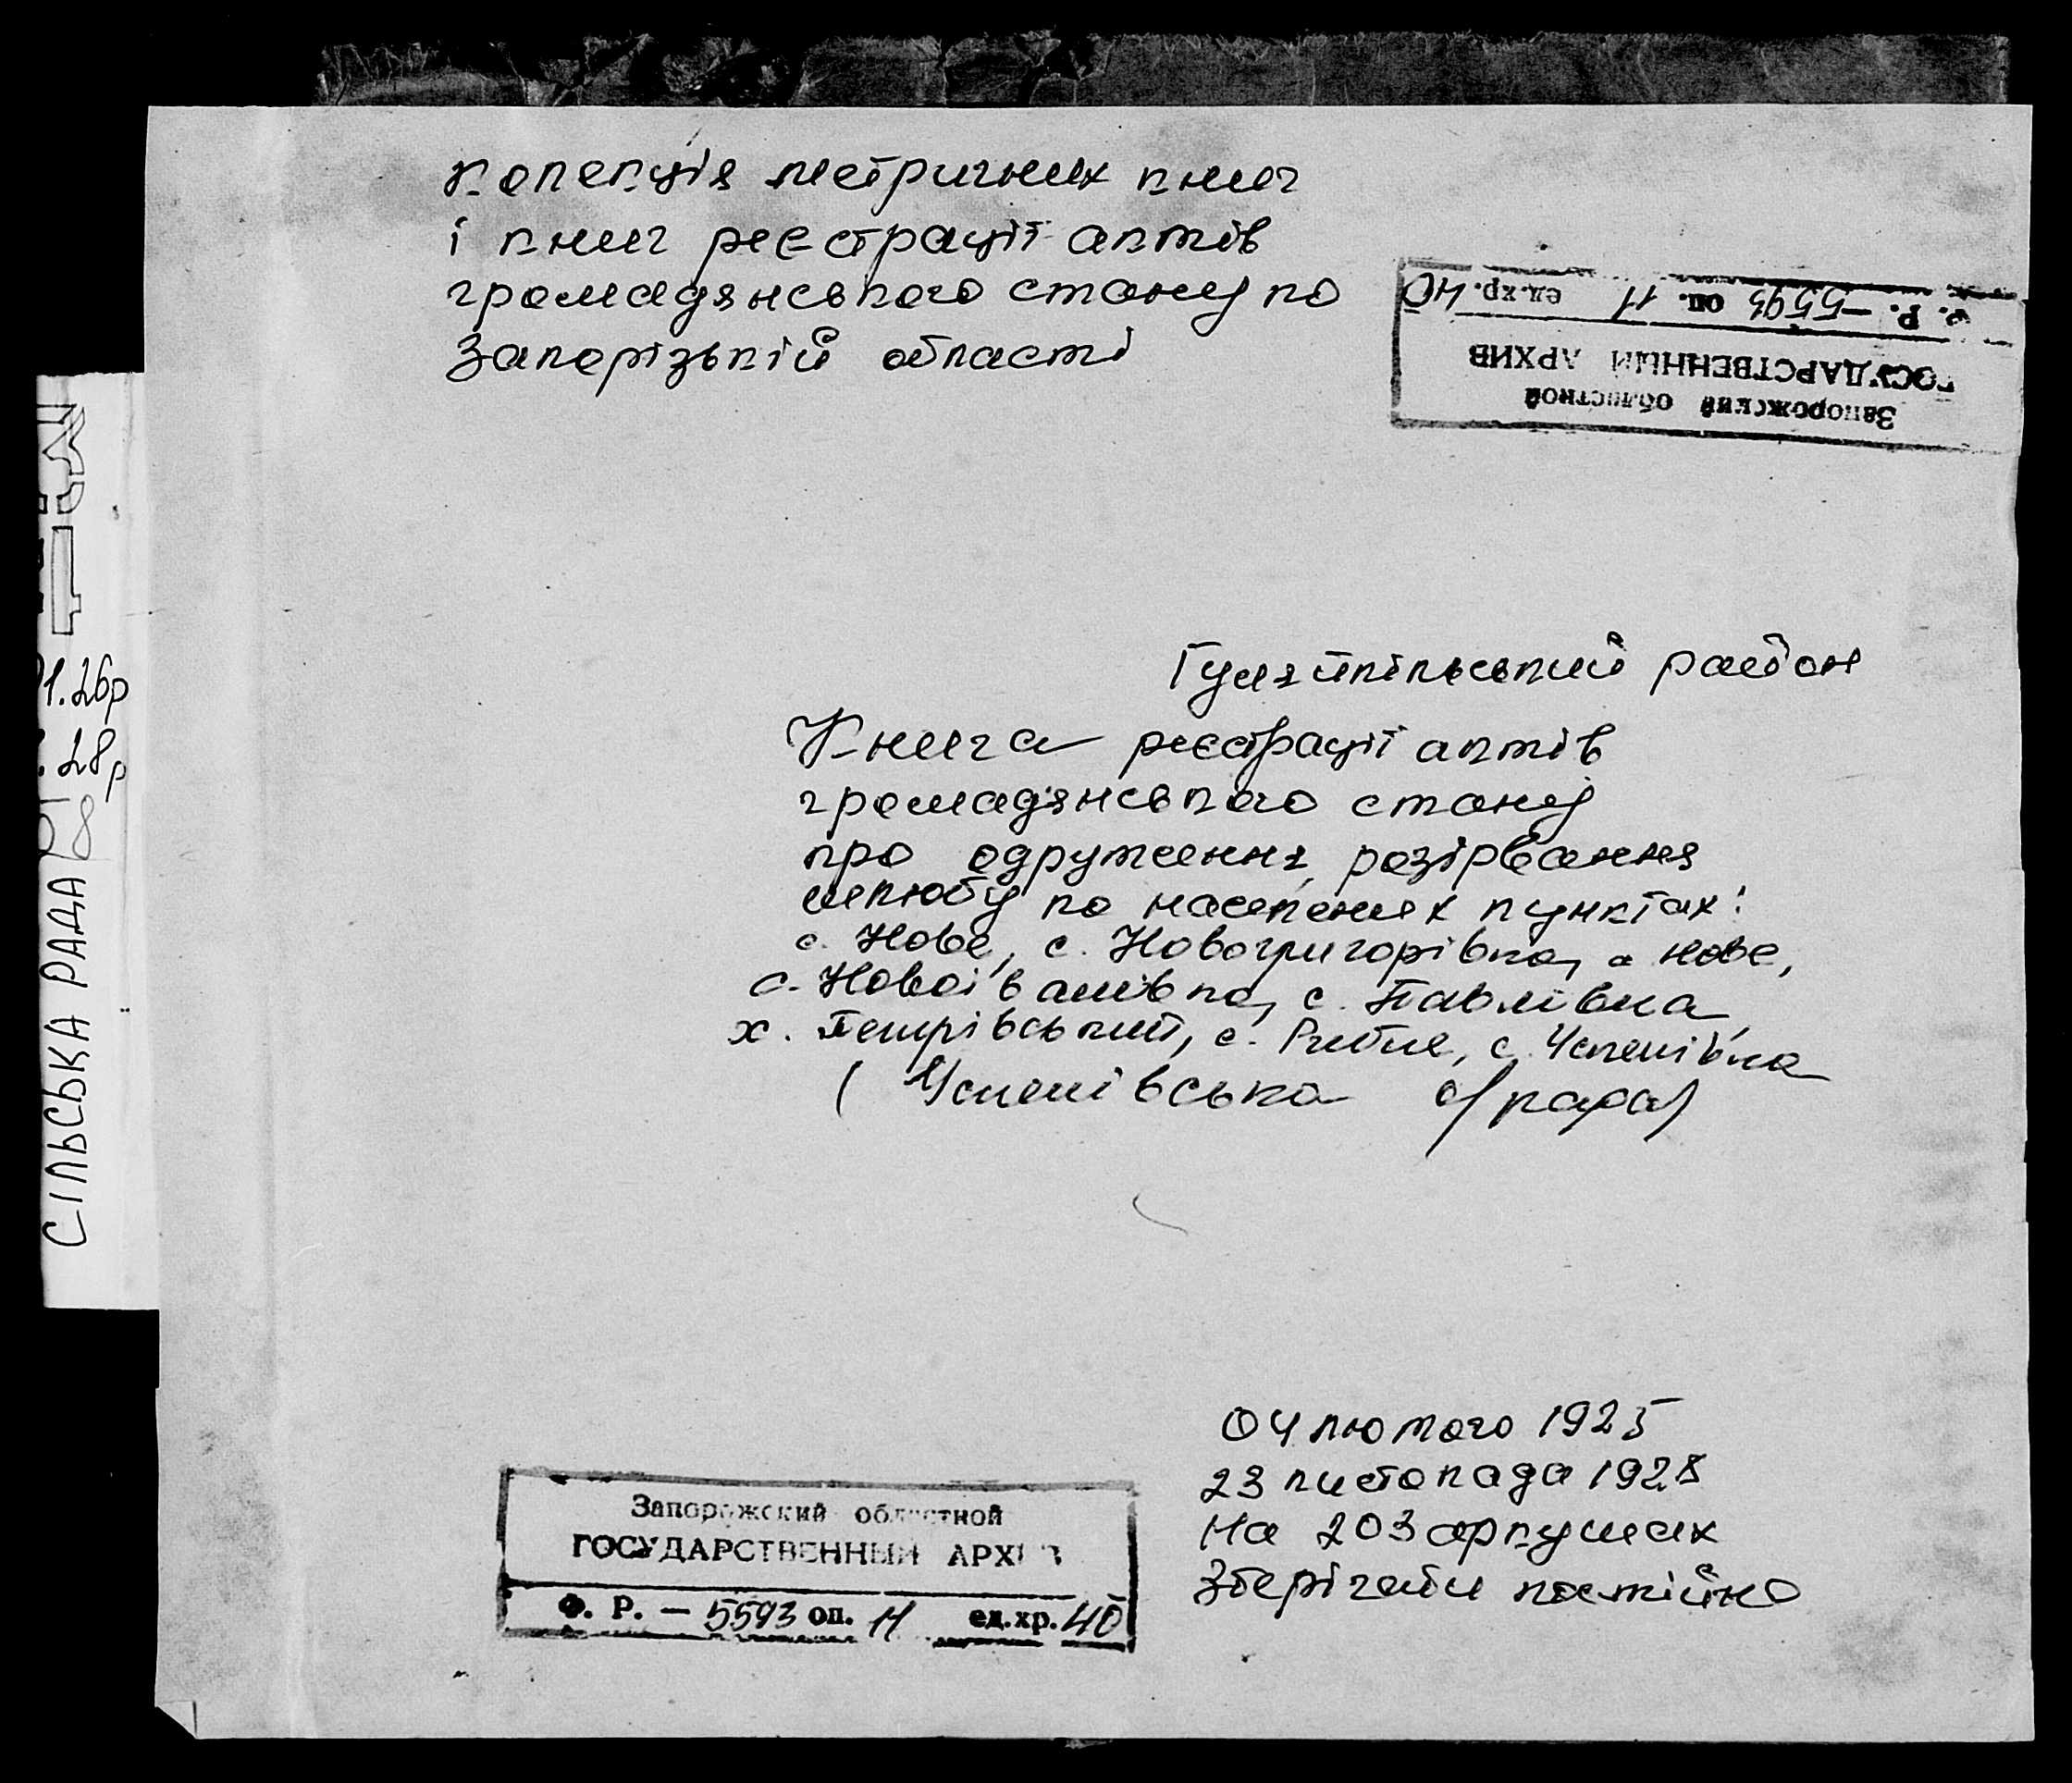 Колекція метричних книг
і книг реєстрації актів
громадянського стану по
Запорізькій області
Запорожский областной
ГОСУДАРСТВЕННЫЙ АРХИВ
Ф. Р. – 5593 оп. 11 ед.хр. 40
Гуляйпільський район
Книга реєстрації актів
громадянського стану
про одруження, розірвання
шлюбу по населених пунктах:
с. Нове, с. Новогригорівка, с. Нове,
с. Новоіванівка, с. Павлівка,
х. Петрівський, с. Рибне, с. Успенівка
(Успенівська с/рада)
04 лютого 1925
23 листопада 1928
На 203 аркушах
Зберігати постійно
Запорожский областной
ГОСУДАРСТВЕННЫЙ АРХИВ
Ф. Р. – 5593 оп. 11 ед.хр. 40
СІЛЬСЬКА РАДА
1.26р
.28р